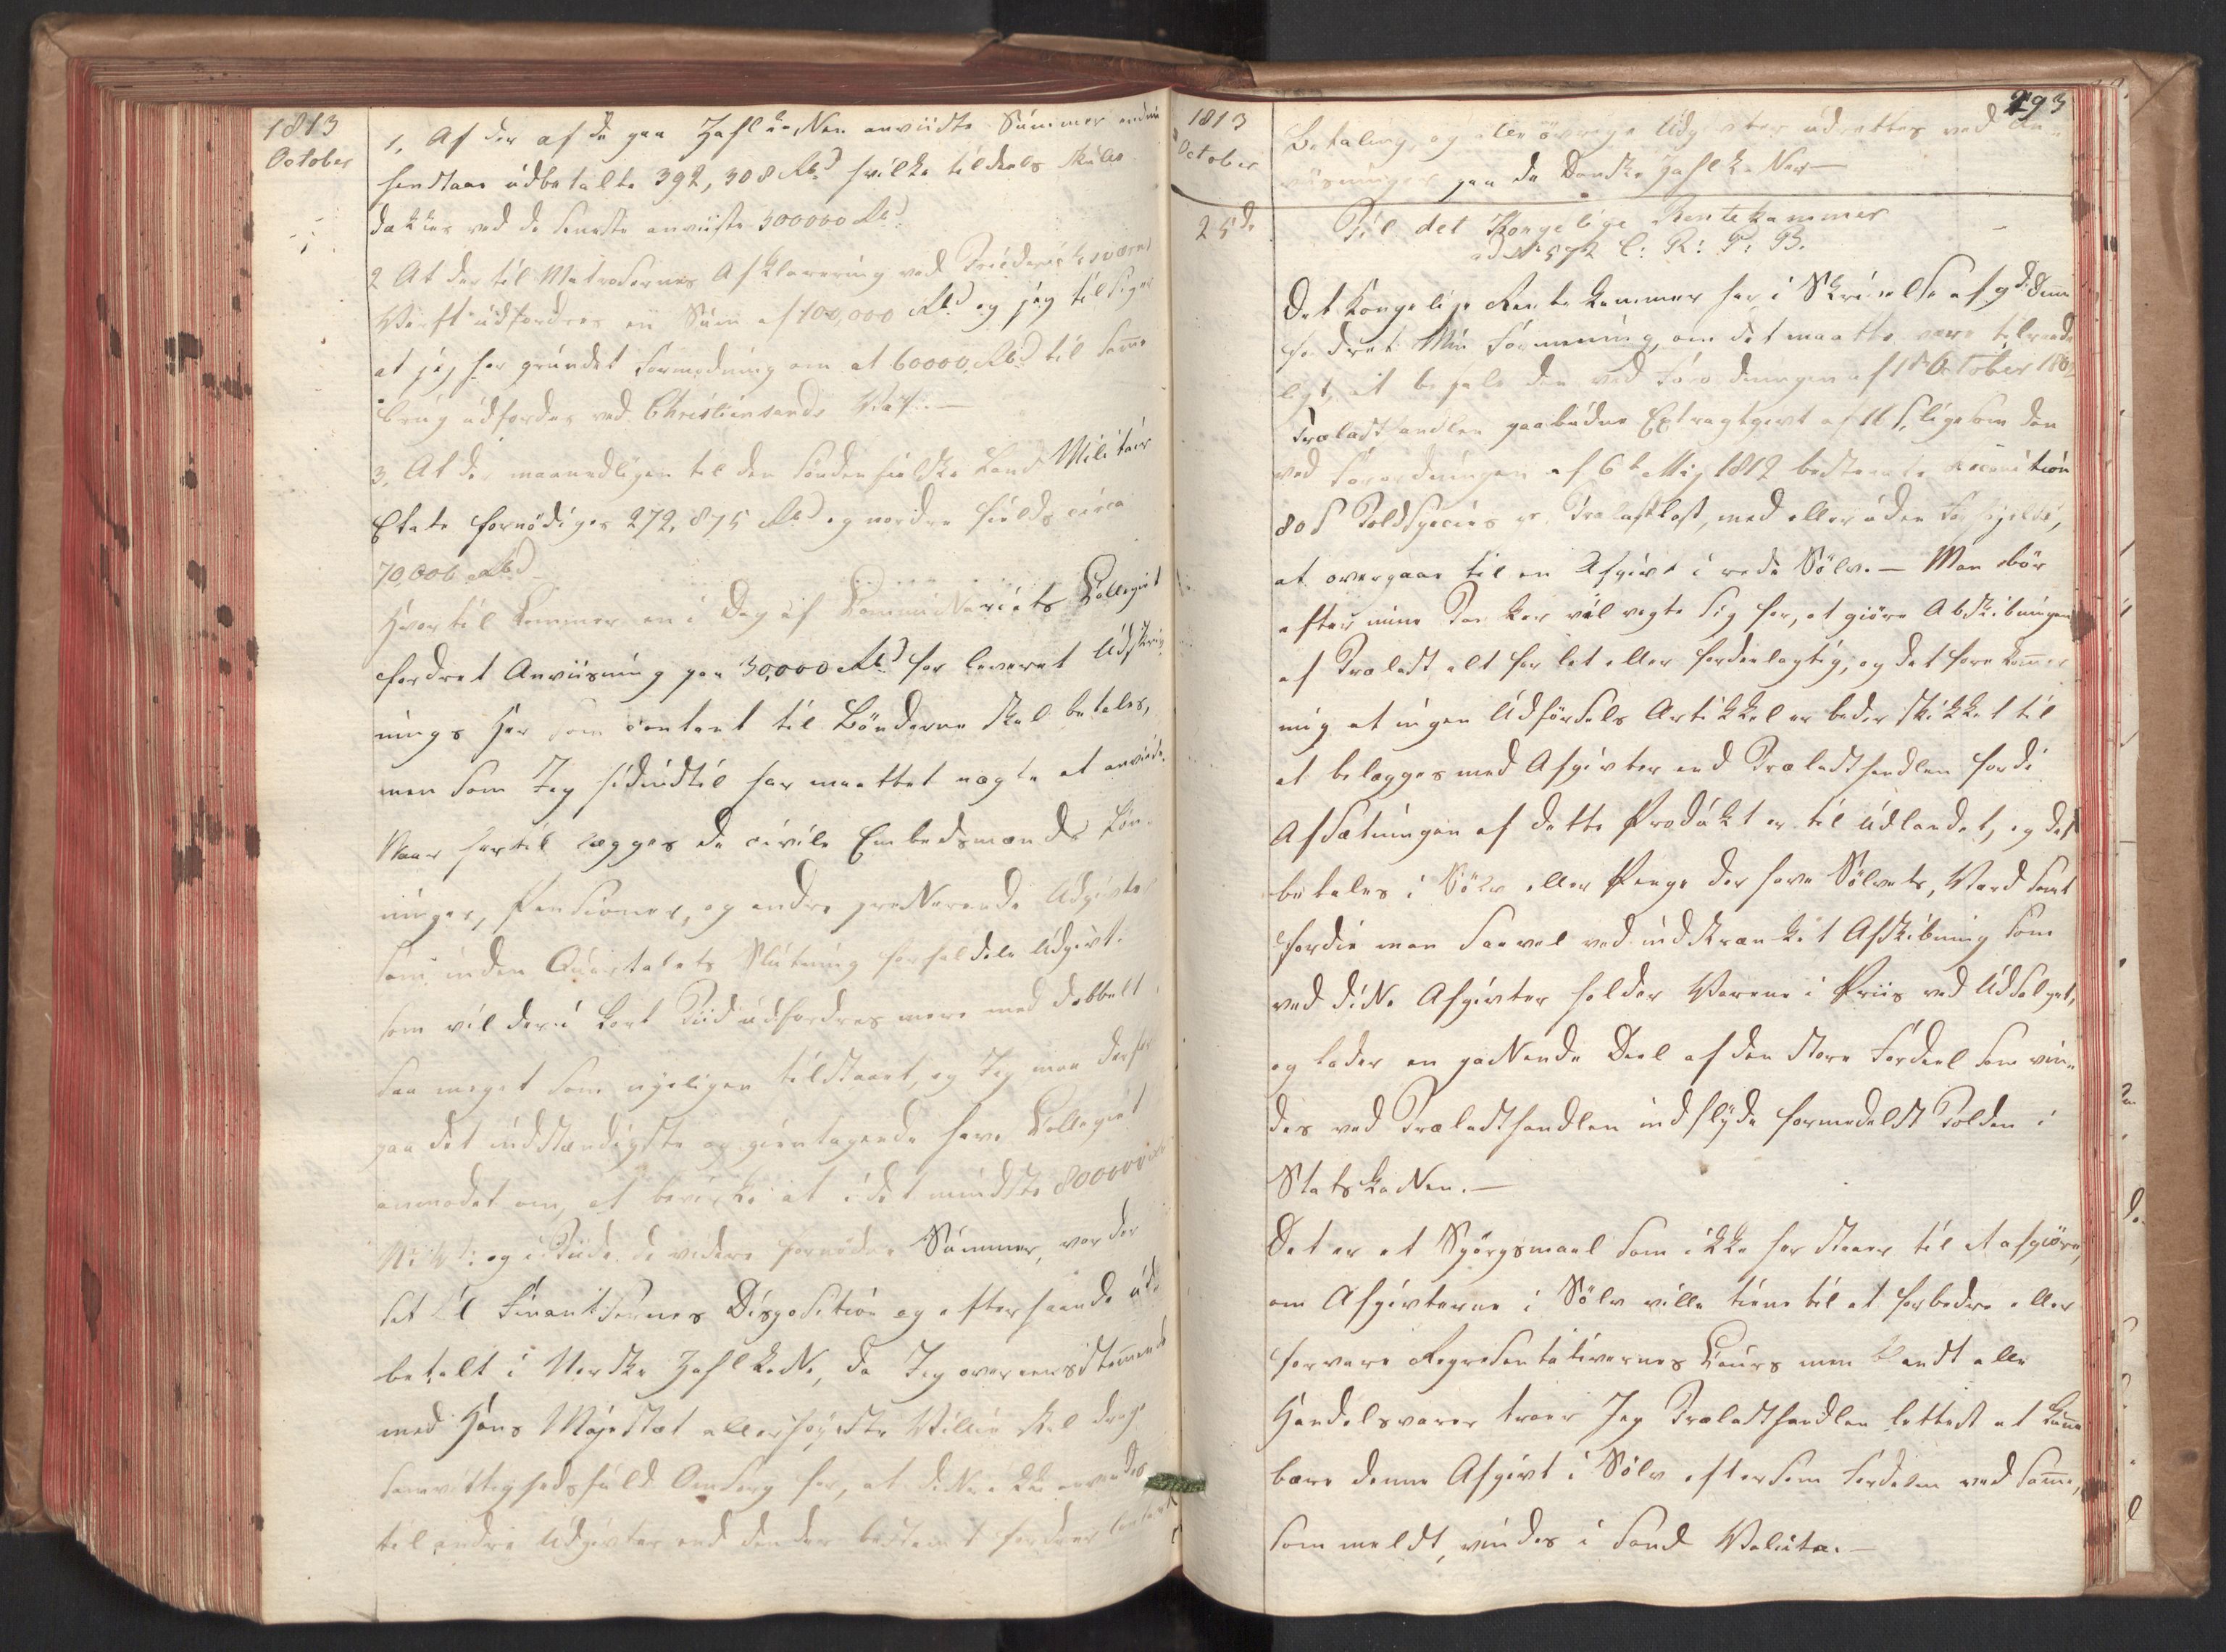 1813
October
1, Af de af de paa Zahlkassen anviiste Summer endnu
henstaae udbetalte 392,308 Rbd hvilke tildeels skulle
dækkes ved de seneste anviiste 300000 Rbd
2 At der til Matrosernes Afklarering ved Friderichsværns
Værft udfordres en Sum af 100,000 Rbd og jeg tilføyer
at jeg har grundet Formodning om at 60000 Rbd til samme
Brug udfordres ved Christiansands Værft.—
3, At der maanedligen til den søndenfieldske Land Militair
Etate fornødiges 272,875 Rbd og nordenfields circa
70,000 Rbd
Hvortil kommer en i Dag af Commissariats Collegiet
fordret Anviisning paa 30,000 Rbd for leveret Udskriv-
nings Høe som contant til Bønderne skal betales,
men som Jeg hidindtil har maattet nægte at anviise.
Naar hertil lægges de civile Embedsmænds Løn-
ninger, Pensioner, og andre presserende Udgivter
som inden Qvartalets Slutning forfaldele Udgivt.
som vil der i kort Tiid udfordres mere end dobbelt
saa meget som nyeligen tilstaaet, og Jeg maa derfor
paa det indstændigste og gientagende have Collegiet
anmodet om, at bevirke at i det mindste 800000
N: V: og i Tiide de videre fornødne Summer, vorder
sat til Finantsernes Disposition og efterhaande ud-
betalt i Norske Zahlkasse, da Jeg overeensstemmende
med Hans Majestæt allerhøyeste Villie skal drage
samvittighedsfuld Omsorg for, at disse ikke anvendes
til andre Udgivter end den der bestemt fordrer contant
1813
October
293
Betaling, og alle øvrige Udgivter udrettes ved An-
viisninger paa de Danske Zahlkasser—
25de
Til det Kongelige Rentekammer
ad No 572 C: R: P: B.
Det Kongelige Rentekammer har i Skrivelse af 9de dennes
fordret Min Formening, om det maatte være tilraade-
ligt, at befale den ved Forordningen af 1ste October 1802
Trælasthandlen paabudne Extraafgivt af 16 s, ligesom den
ved Forordningen af 6te Mai 1812 bestemte Recognition
80 s Toldspecies pr. Trælastlæst, med eller uden Forhøielse,
at overgaae til en Afgivt i rede Sølv.— Man bør
efter mine Tanker vel vogte sig for, at giøre Afskibningen
af Trælast alt for let eller fordeelagtig, og det forekommer
mig at ingen Udførsels Artikkel er bedre skikket til
at belægges med Afgivter end Trælasthandlen fordi
Afsætningen af dette Product er til Udlandet, og det
betales i Sølv eller Penge der have Sølvets, Værd samt
fordie man saavel ved indskrænket Afskibning som
ved disse Afgivter holder Varene i Priis ved Udsalget,
og lader en passende Deel af den store Fordeel som vin-
des ved Trælasthandlen indflyde formedelst Tolden i
Statskassen.—
Det er et Spørgsmaal som ikke her staaer til at afgiøre,
om Afgivterne i Sølv ville tiene til at forbedre eller
forvære Repræsentativernes Cours men blandt alle
Handelsvarer troer Jeg Trælasthandlen lettest at kunne
bære denne Afgivt i Sølv eftersom Fordelen ved samme,
som meldt, vindes i sand Valuta.—